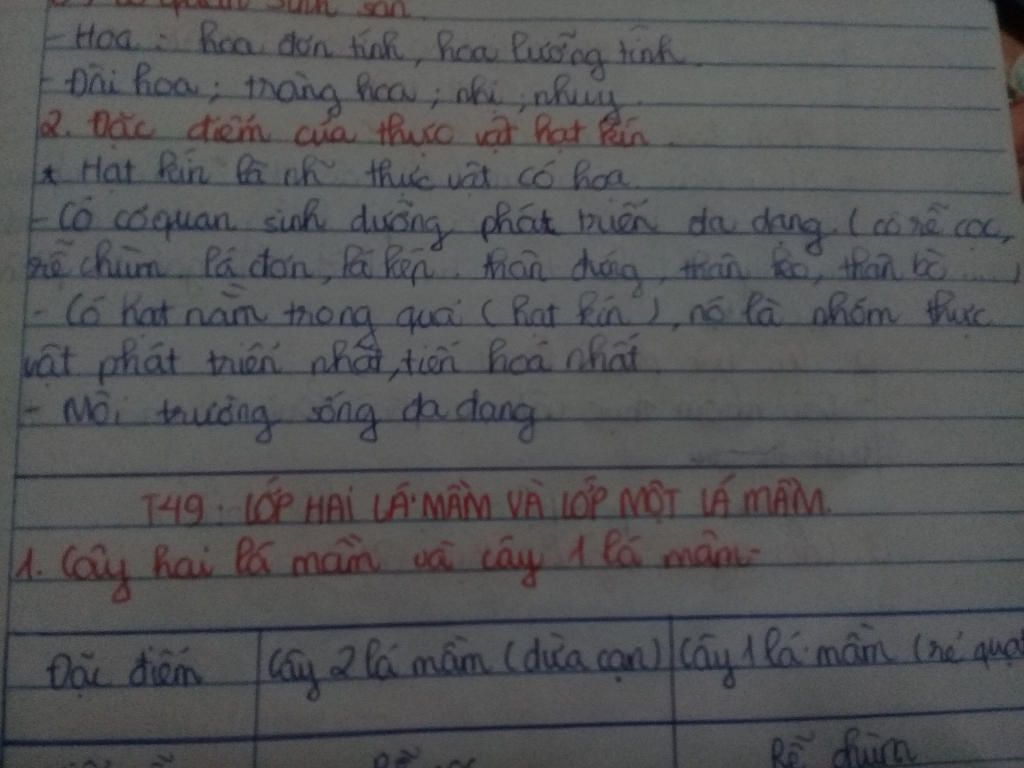 quan sinh sản
- Hoa: hoa đơn tính, hoa lưỡng tính.
- Đài hoa; tràng hoa; nhị; nhụy.
2. Đặc điểm của thực vật hạt kín.
* Hạt kín là nh~ thực vật có hoa.
- Có cơ quan sinh dưỡng phát triển đa dạng. (có rễ cọc,
rễ chùm lá đơn, lá kép. thân đứng, thân leo, thân bò ...)
- Có hạt nằm trong quả (hạt kín), nó là nhóm thực
vật phát triển nhất, tiến hoá nhất
- Môi trường sống đa dạng
T49: LỚP HAI LÁ MẦM VÀ LỚP MỘT LÁ MẦM.
1. Cây hai lá mầm và cây 1 lá mầm.
Đặc điểm Cây 2 lá mầm (dừa cạn) Cây 1 lá mầm (rẻ quạt
Rễ Rễ chùm